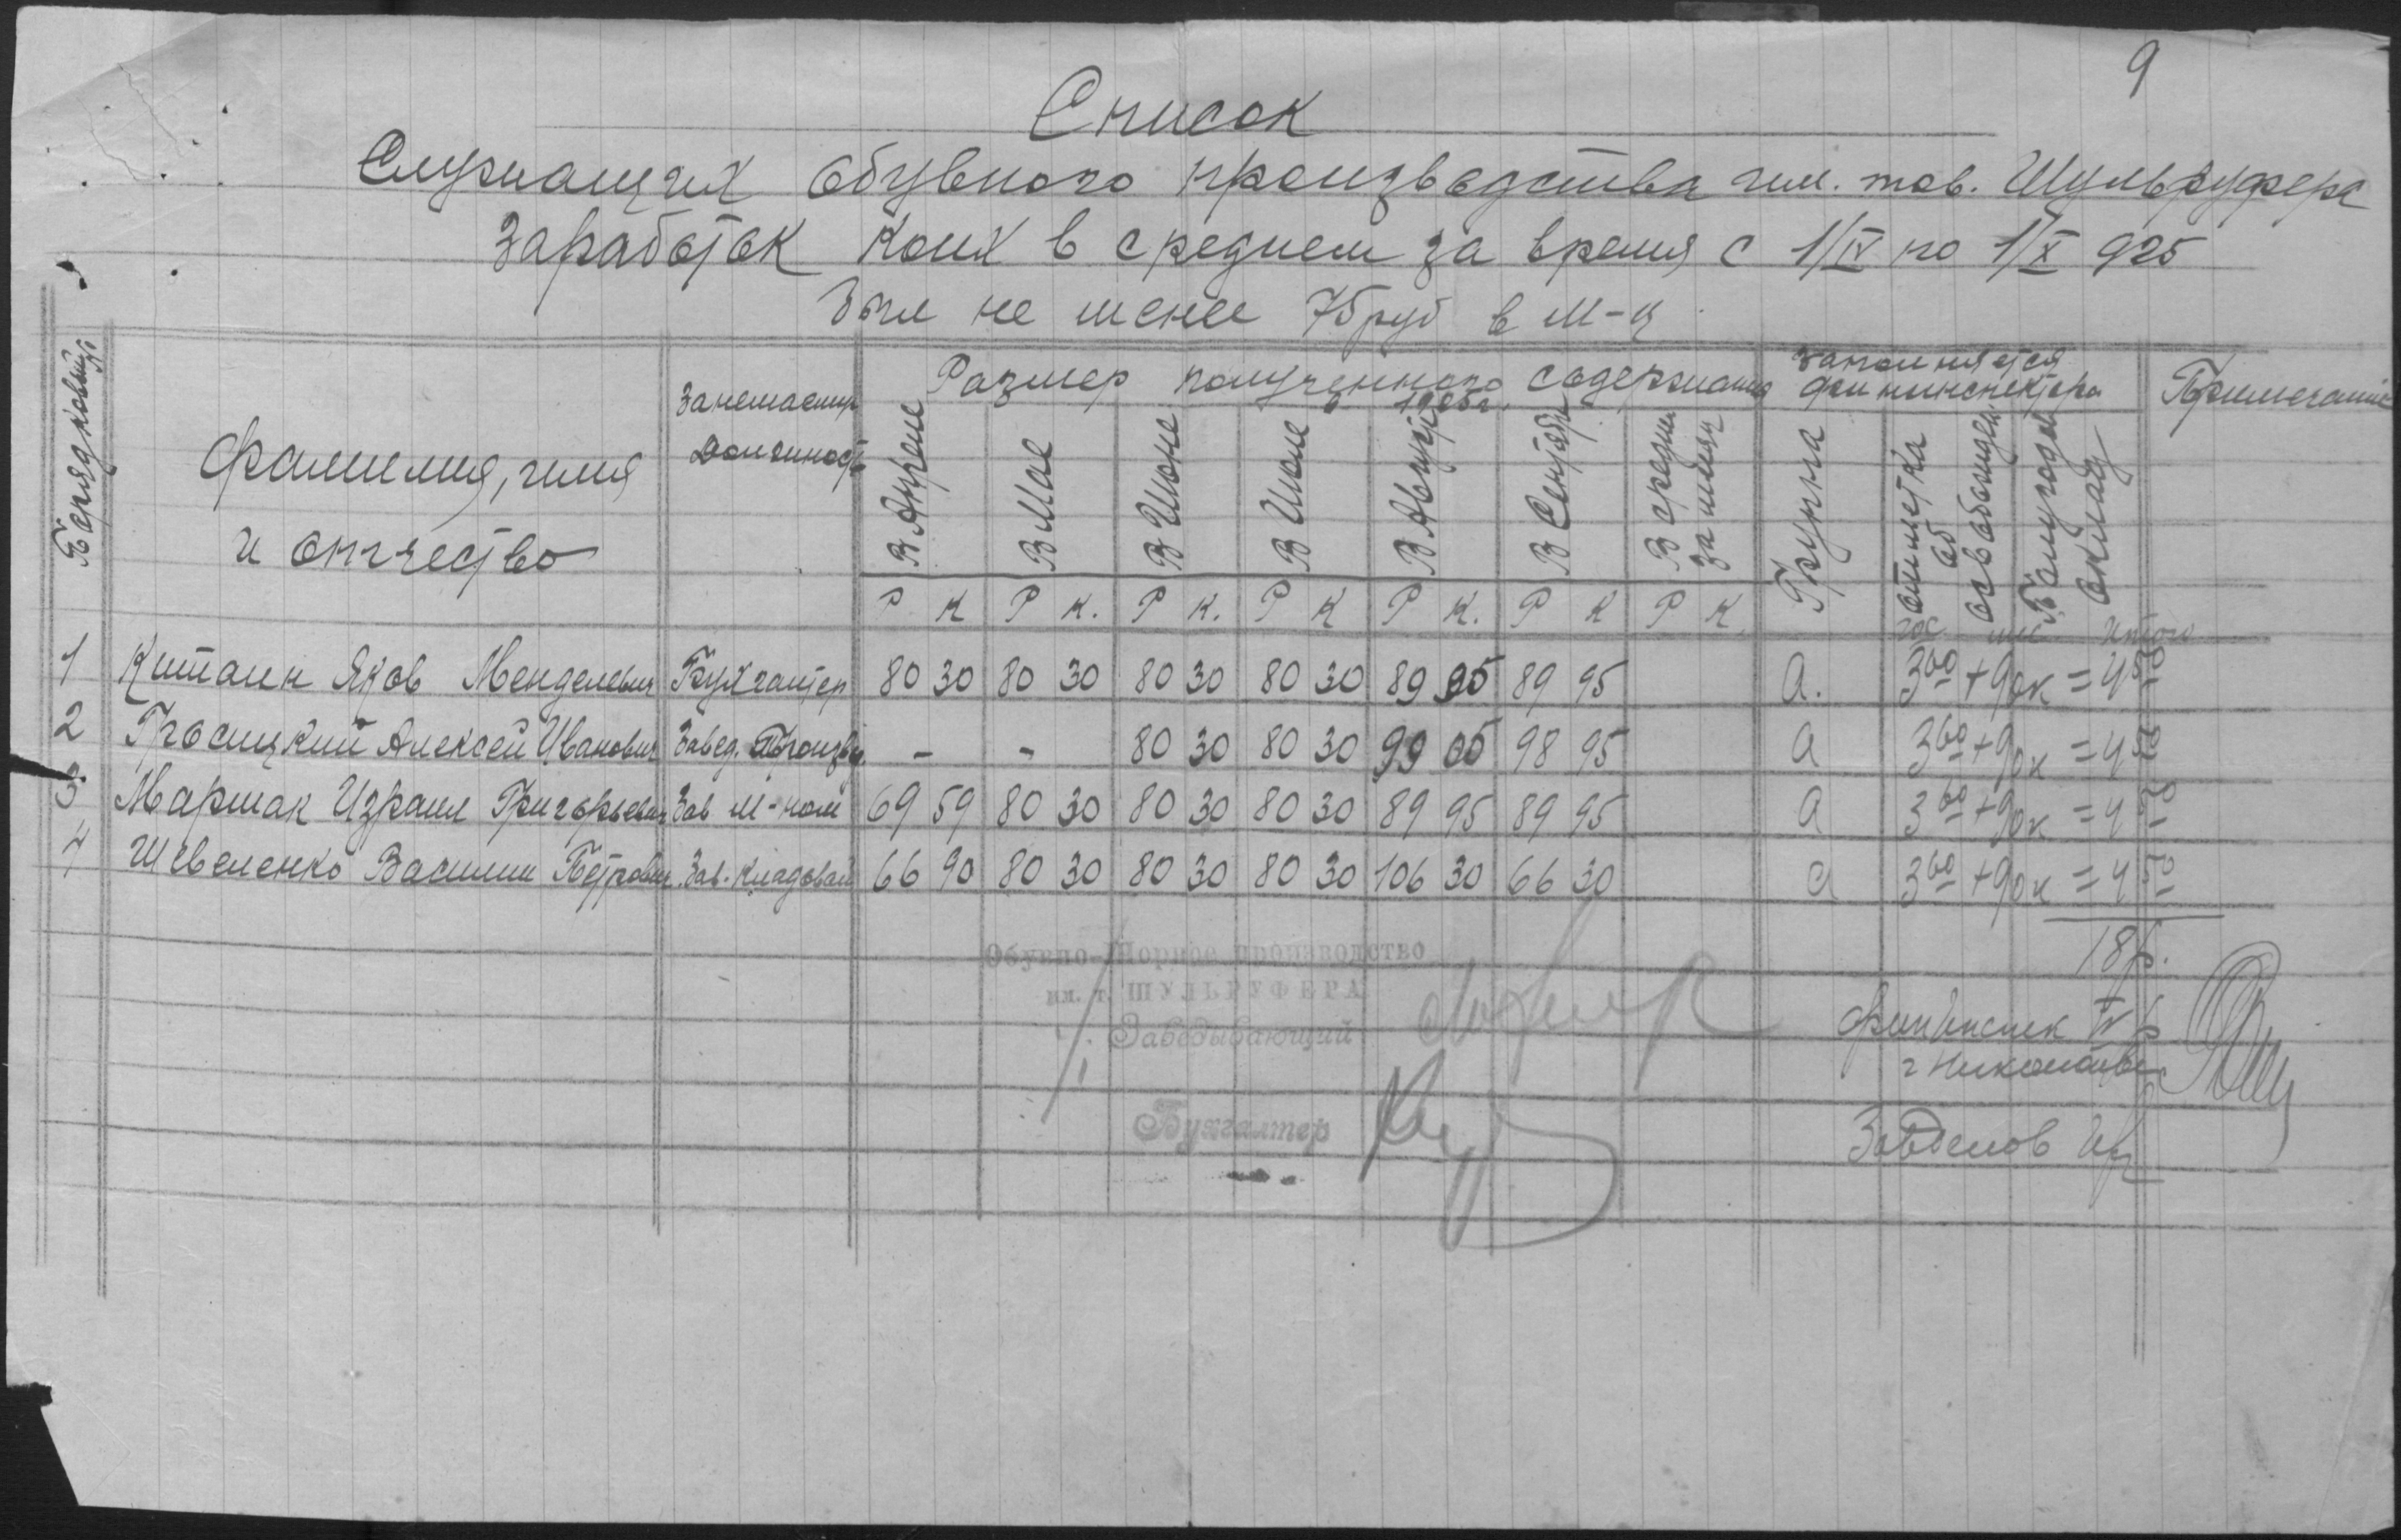 9
Список
Служащих обувного производства им. тов. Шульруфера
Заработок коих в среднем за время с 1/IV по 1/X 925
был не менее 75 руб в м-ц
Порядковый №
Фамилия, имя
и отчество
Занимаемая
должность
Размер полученного содержания
в 1925 г.
В Апреле
В Мае
В Июне
В Июле
В Августе
В Сентябре
В средн за месяц
Заполняется
фининспектором
Группа
отметка об освобожден
Полугодов оклад
Примечание
Р К Р К. Р К. Р К Р К. Р К Р К
гос мес Итого
1 Китаин Яков Менделевич Бухгалтер 80 30 80 30 80 30 80 30 89 95 89 95 а. 3 60 + 90к = 4 50
2 Алексей Иванович Завед. Произв. - - 80 30 80 30 99 05 98 95 а 3 60 + 90к = 4 50
3 Маршак Израил Григорьевич Зав м-ном 69 59 80 30 80 30 80 30 89 95 89 95 а 3 60 + 90к = 4 50
4 Шевеленко Василий Петрович Зав. Кладовой 66 90 80 30 80 30 80 30 106 30 66 30 а 3 60 + 90к = 4 50
18р.
Обувно-Шорное производство
им. т. ШУЛЬРУФЕРА
Заведывающий
Бухгалтер
Фининспек IV р
г Николаева